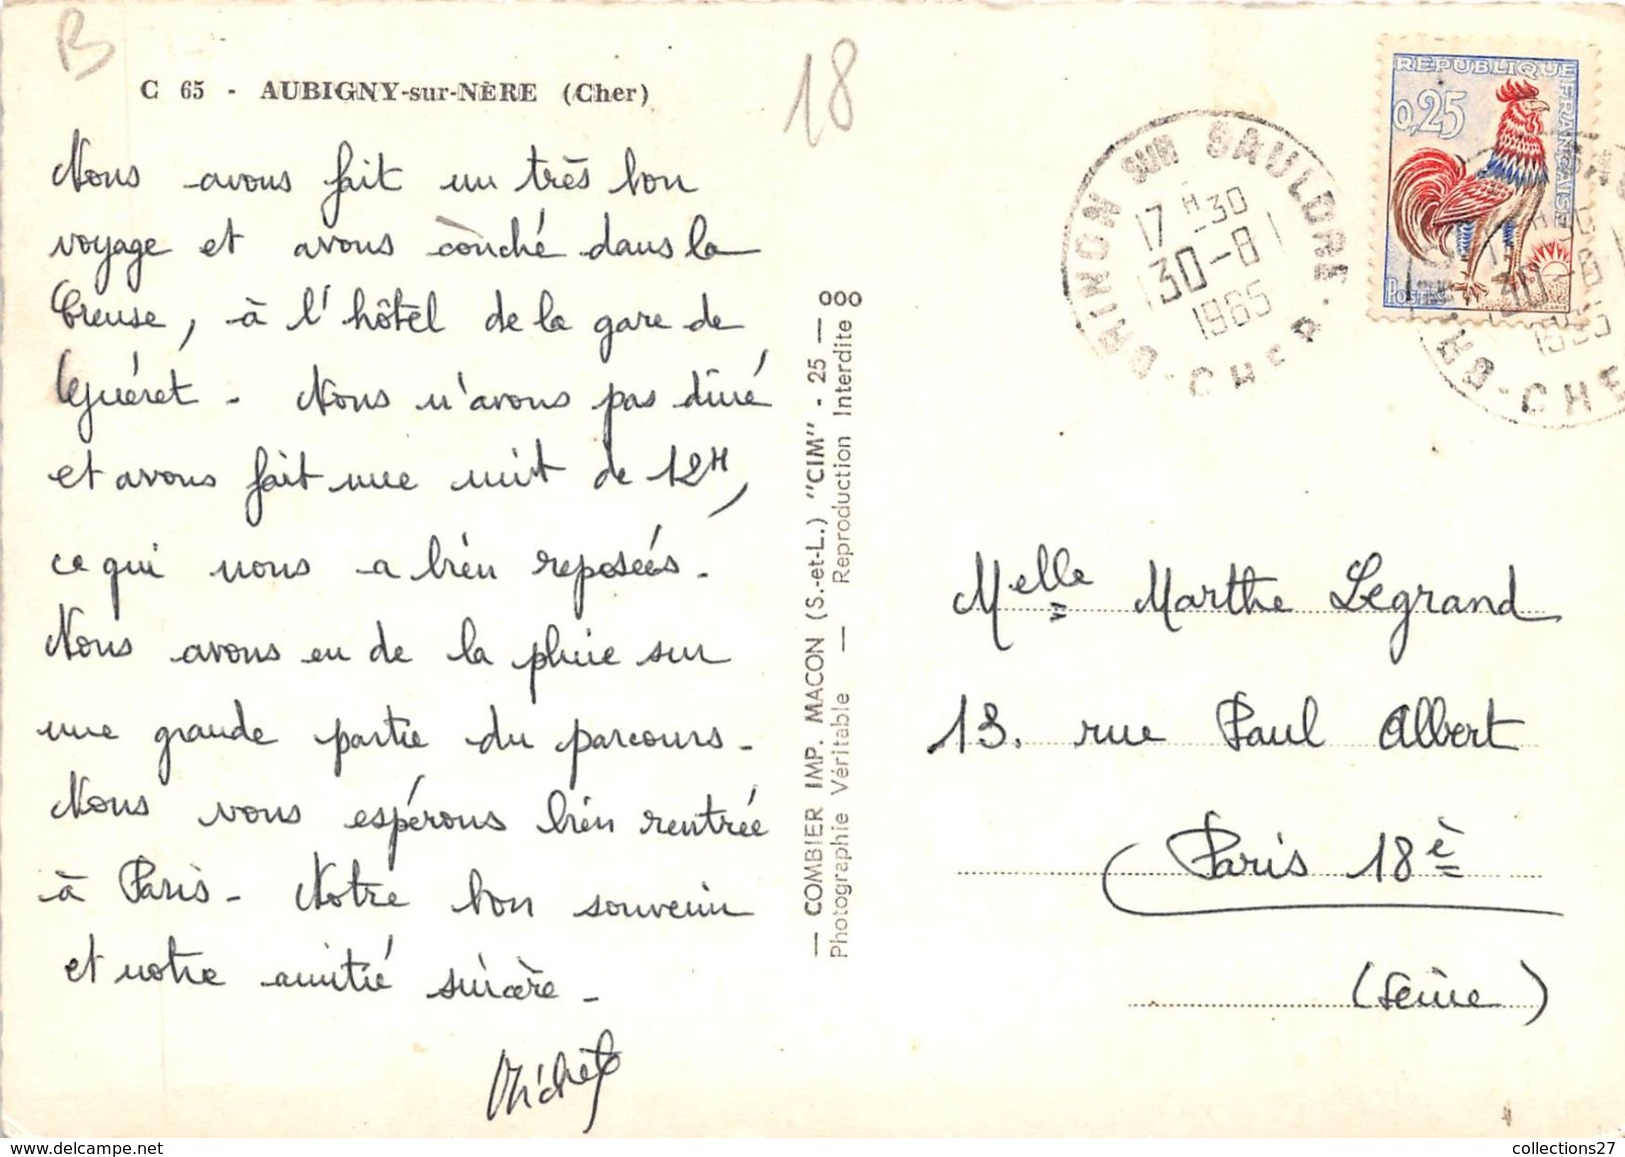 B
18
C 65 - AUBIGNY-sur-NÈRE (Cher)
Nous avons fait un très bon
voyage et avons couché dans la
Creuse, à l'hôtel de la gare de
Guéret - Nous n'avons pas dîné
et avons fait une nuit de 12H,
ce qui nous a bien reposées.
Nous avons eu de la pluie sur
une grande partie du parcours.
Nous vous espérons bien rentrée
à Paris - Notre bon souvenir
et notre amitié sincère -
Michèle
— COMBIER IMP. MACON (S.-et-L.) "CIM" - 25 — 000
Photographie Véritable — Reproduction Interdite
BRINON SUR SAULDRE
17H30
30-8
1965
CHER
REPUBLIQUE FRANÇAISE
0,25
POSTES
Melle Marthe Legrand
13. rue Paul Albert
Paris 18è
(Seine)
collections27